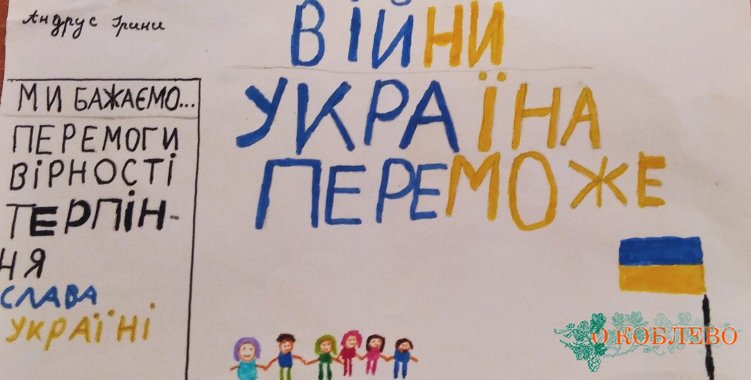 Андрус Ірини
ВІЙНИ
УКРАЇНА
ПЕРЕМОЖЕ
МИ БАЖАЄМО...
ПЕРЕМОГИ
ВІРНОСТІ
ТЕРПІН-
НЯ
СЛАВА
УКРАЇНІ
О КОБЛЕВО